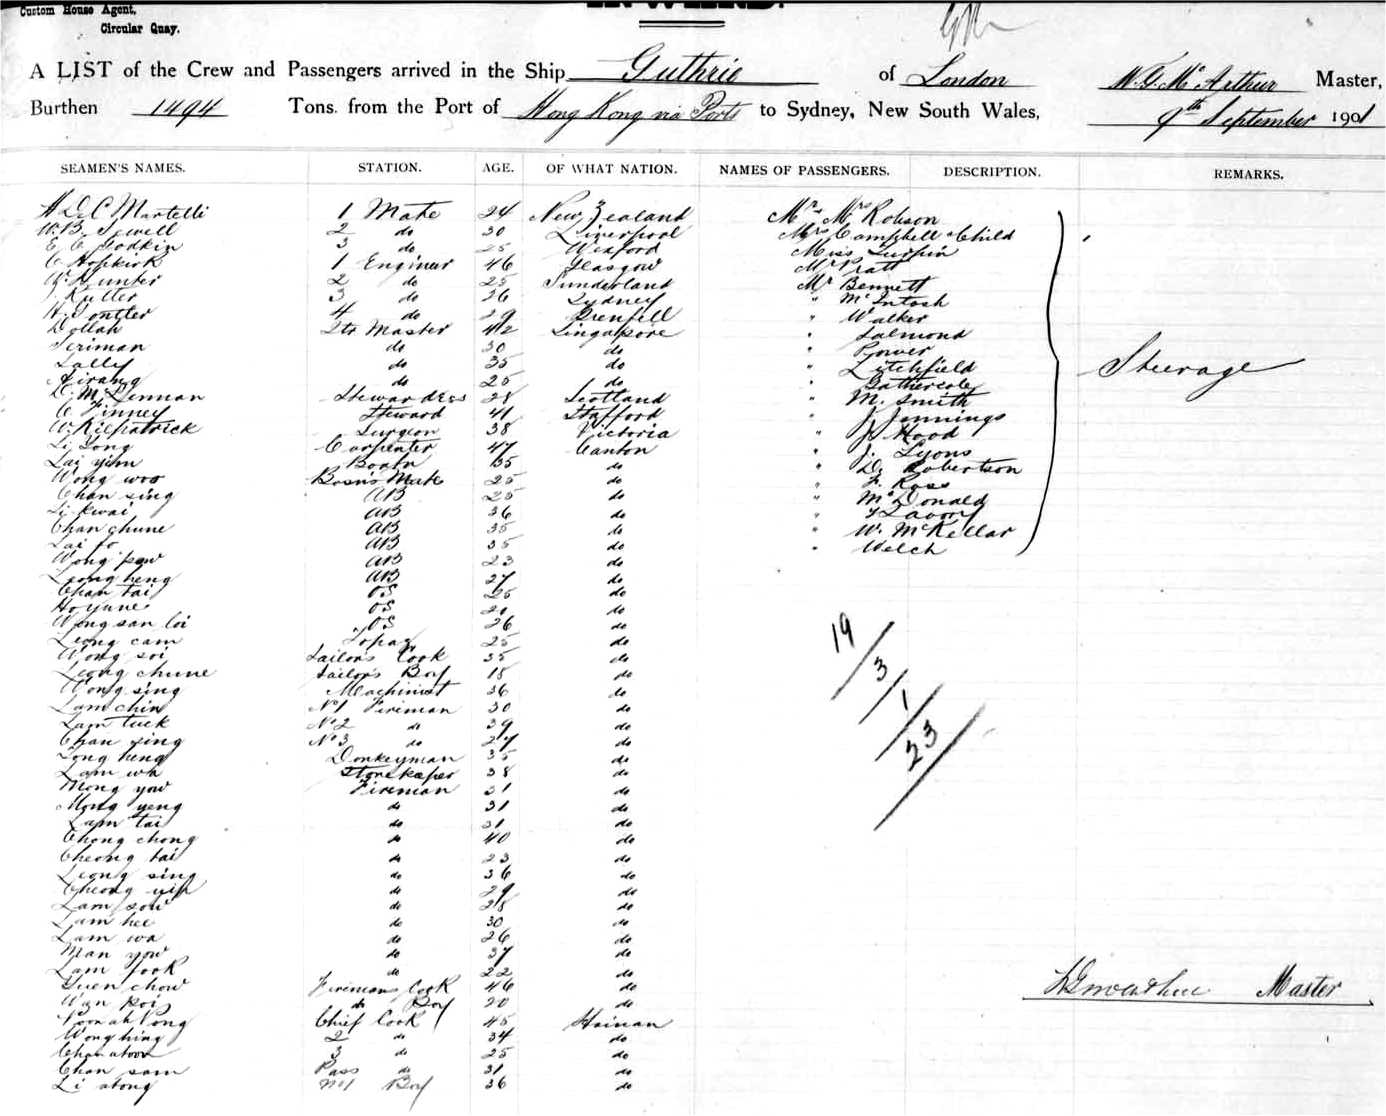 Custom House Agent,
Circular Quay.
INWARD.
A LIST of the Crew and Passengers arrived in the Ship Guthrie of London W. G. McArthur Master,
Burthen 1494 Tons. from the Port of Hong Kong via Ports to Sydney, New South Wales, 9th September 1901
SEAMEN'S NAMES. STATION. AGE. OF WHAT NATION. NAMES OF PASSENGERS. DESCRIPTION. REMARKS.
A. D. C. Martelli 1 Mate 24 New Zealand Mr Mrs Robson
W. B. Sewell 2 do 30 Liverpool Mrs Campbell & Child
E C Godkin 3 do 25 Wexford Miss Turpin
C Hopkirk 1 Engineer 46 Glasgow Mr Pratt
Hunter 2 do 25 Sunderland Mr Bennett
J. Rutter 3 do 36 Sydney " McIntosh
H. 4 do 29 Grenfell " Walker
Dollah Qtr Master 42 Singapore " Salmond
Seriman do 30 do " Power
Lally do 35 do " Litchfield
Airang do 25 do " Gathercole
D. McLennan Stewardess 28 Scotland " M. Smith
C Finney Steward 41 Stafford " J Jennings
W Kilpatrick Surgeon 38 Victoria " J. Hood
Li Yong Carpenter 47 Canton " J. Lyons
Lai yim Boatn 35 do " D. Robertson
Wong woo Bosn's Mate 25 do " J. Ross
Chan sing AB 25 do " McDonald
Li Kwai AB 36 do "
Chan chune AB 35 do " W. McKellar
Lai fo AB 35 do " Welch
Wong paw AB 23 do
Leong heng AB 27 do
Chan tai OS 25 do
Ho yune OS 21 do
Wong san loi OS 26 do
Leong cam Topaz 25 do
Wong soi Sailors Cook 35 do
Leong chune Sailors Boy 18 do
Wong sing Machinist 36 do
Lam chin No 1 Fireman 30 do
Lam tuck No 2 do 39 do
Chan sing No 3 do 27 do
Long heng Donkeyman 35 do
Lam wh Storekeeper 38 do
Mong yow Fireman 31 do
Mong yeng do 31 do
Lam tai do 31 do
Chong chong do 40 do
Cheong tai do 23 do
Leong sing do 36 do
Cheong yip do 29 do
Lam sow do 28 do
Lam hee do 30 do
Lam wa do 26 do
Man yow do 37 do
Lam fook do 22 do
Yuen chow Firemans Cook 46 do
Wan Koi do Boy 20 do
Poon ah Pong Chief Cook 45 Hainan
Wong hing 2 do 34 do
Chan atoon 3 do 25 do
Chan sam Pass do 31 do
Li atong No 1 Boy 36 do
Steerage
19
3
1
23
W G McArthur Master